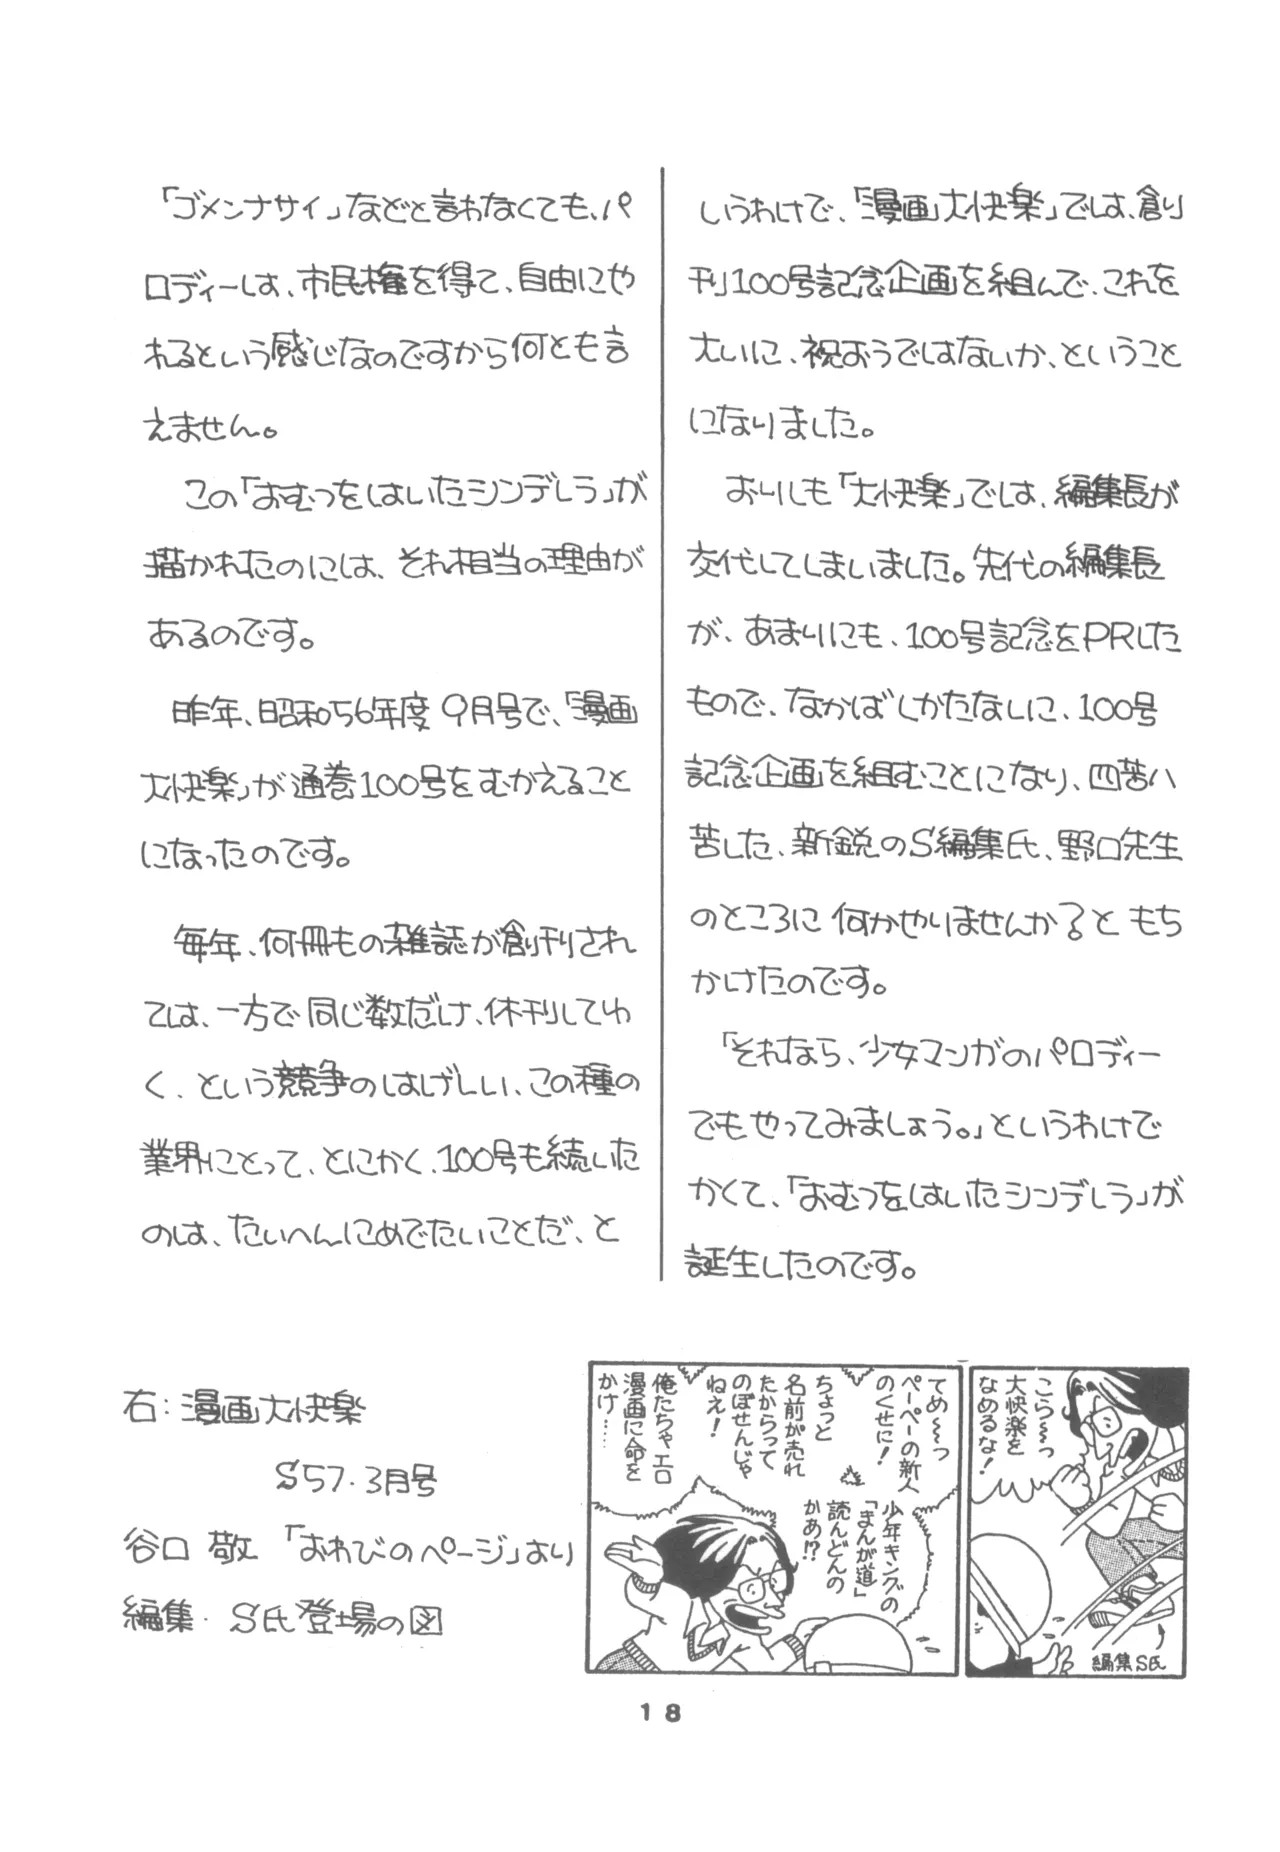 「ゴメンナサイ」などと言わなくても、パ
ロディーは、市民権を得て、自由にや
れるという感じなのですから何とも言
えません。
この「おむつをはいたシンデレラ」が
描かれたのには、それ相当の理由が
あるのです。
昨年、昭和56年度9月号で、「漫画
大快楽」が通巻100号をむかえること
になったのです。
毎年、何冊もの雑誌が創刊され
ては、一方で同じ数だけ、休刊してゆ
く、という競争のはげしい、この種の
業界にとって、とにかく、100号も続いた
のは、たいへんにめでたいことだ、と
いうわけで、「漫画大快楽」では、創
刊100号記念企画を組んで、これを
大いに、祝おうではないか、ということ
になりました。
おりしも「大快楽」では、編集長が
交代してしまいました。先代の編集長
が、あまりにも、100号記念をPRした
もので、なかばしかたなしに、100号
記念企画を組むことになり、四苦八
苦した、新鋭のS編集氏、野口先生
のところに何かやりませんか?ともち
かけたのです。
「それなら、少女マンガのパロディー
でもやってみましょう。」というわけで
かくて、「おむつをはいたシンデレラ」が
誕生したのです。
右:漫画大快楽
S57.3月号
谷口 敬 「おわびのページ」より
編集・S氏登場の図
こら〜っ
大快楽を
なめるな!
編集S氏
てめ〜〜っ
ペーペーの新人
のくせに!
ちょっと
名前が売れ
たからって
のぼせんじゃ
ねえ!
俺たちゃエロ
漫画に命を
かけ……
少年キングの
「まんが道」
読んどんの
かあ!?
18